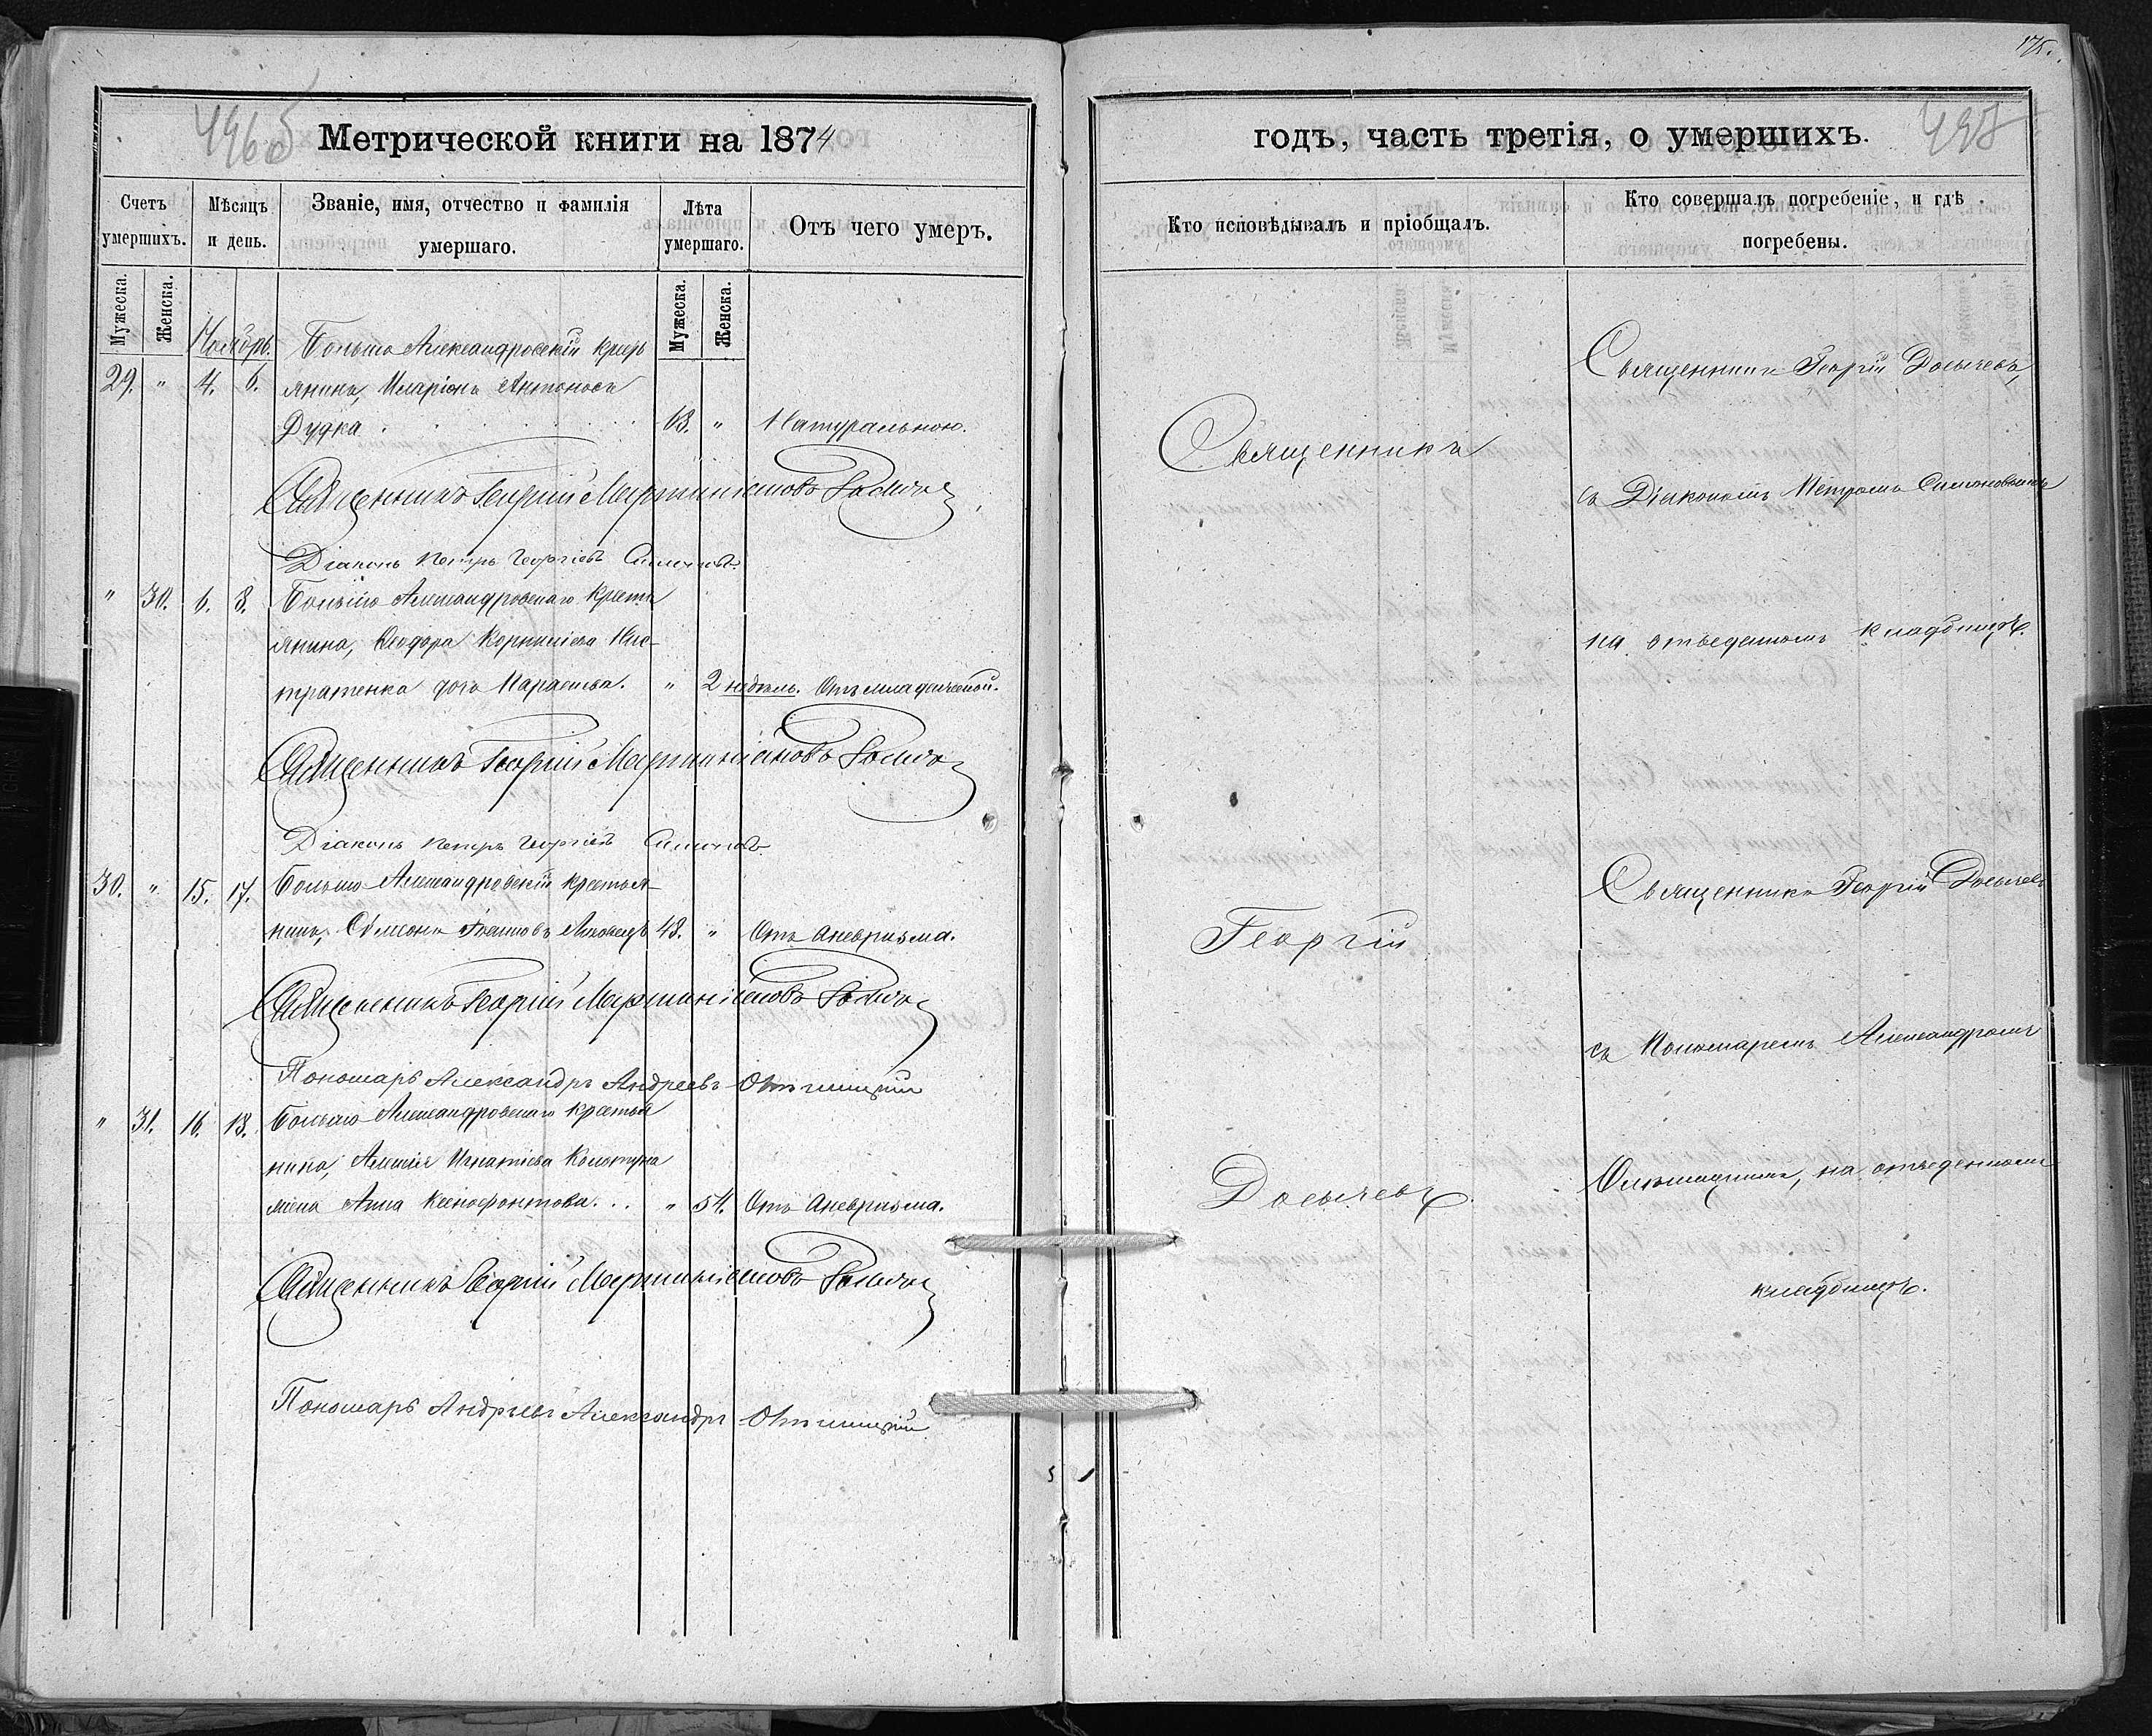 175.
496об
Метрической книги на 1874
годъ, часть третія, о умершихъ.
Счетъ умершихъ.
Мѣсяцъ и день.
Званіе, имя, отчество и фамилія умершаго.
Лѣта умершаго.
Отъ чего умеръ.
Кто исповѣдывалъ и пріобщалъ.
Кто совершалъ погребеніе, и гдѣ погребены.
Мужеска.
Женска.
Мужеска.
Женска.
Ноябрь.
Больше Александровскій крест
29. " 4. 6. янинъ, Иларіонъ Антоновъ
Дудка 63. " Натуральною.
Священникъ Георгій Мартиніановъ
Діаконъ Петръ Георгіевъ Симоновъ
" 30. 6. 8. Больше Александровскаго крестъ
янина, Ѳеодора Корниліева
дочь Параскева. " 2 недѣль. Отъ младенческой.
Священникъ Георгій Мартиніановъ
Діаконъ Петръ Георгіевъ Симоновъ
30. " 15. 17. Больше Александровскій крестья-
нинъ, Сѵмеонъ Іоанновъ 48. " Отъ аневризма.
Священникъ Георгій Мартиніановъ
Пономарь Александръ Андреевъ
" 31. 16. 18. Больше Александровскаго крестья
нина, Алексія Игнатіева
жена Анна Ксенофонтова. . . " 54. Отъ аневризма.
Священникъ Георгій Мартиніановъ
Пономарь Андреевъ Александръ
Священникъ
Георгій
Досычевъ.
Священникъ Георгій Досычевъ,
съ Діакономъ Петромъ Симоновымъ
на отведенномъ кладбищѣ.
Священникъ Георгій Досычевъ
съ Пономаремъ Александромъ
на отведенномъ
кладбищѣ.